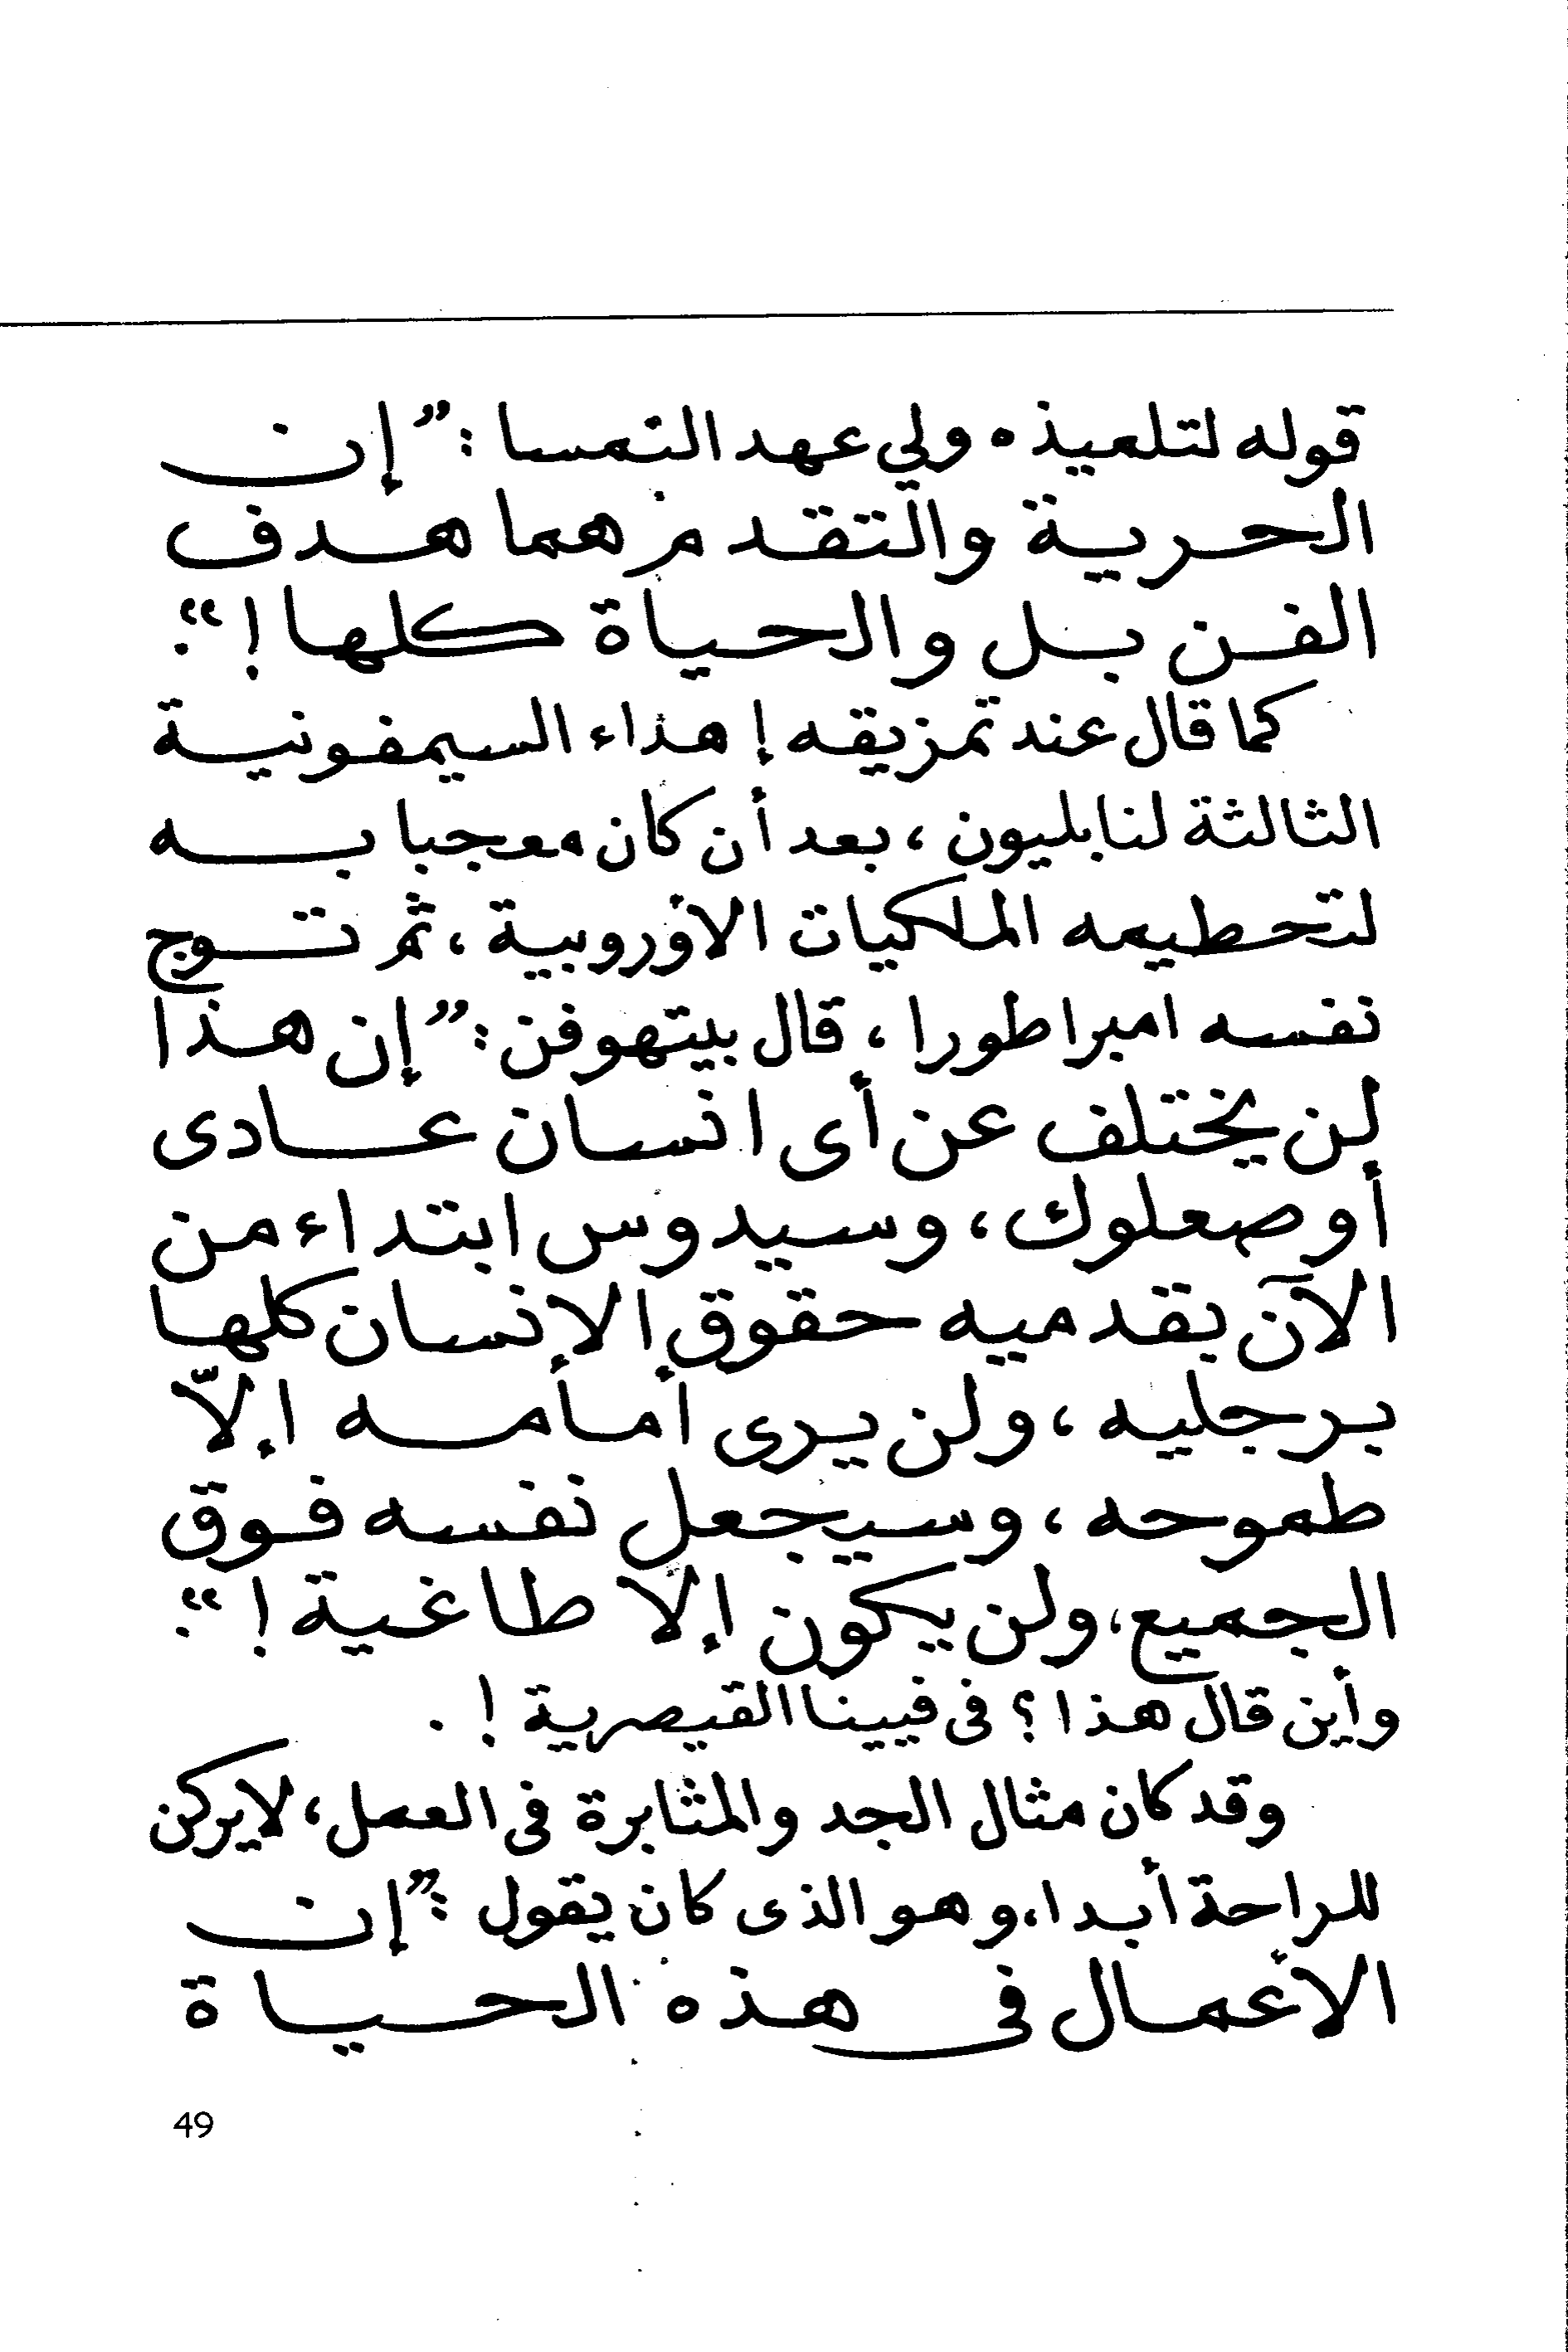 قوله لتلميذه ولي عهد النمسا : ” إن
الحرية والتقدم هما هدف
الفن بل والحياة كلها ! “ .
كما قال عند تمزيقه إهداء السيمفونية
الثالثة لنابليون ، بعد أن كان معجبا به
لتحطيمه الملكيات الأوروبية ، ثم توج
نفسه امبراطورا ، قال بيتهوفن : ” إن هذا
لن يختلف عن أى انسان عادى
أو صعلوك ، وسيدوس ابتداء من
الآن بقدميه حقوق الإنسان كلها
برجليه ، ولن يرى أمامه إلاّ
طموحه ، وسيجعل نفسه فوق
الجميع ، ولن يكون إلا طاغية ! “ .
وأين قال هذا ؟ فى فيينا القيصرية ! .
وقد كان مثال الجد والمثابرة فى العمل ، لا يركن
للراحة أبدا ، وهو الذى كان يقول : ” إن
الأعمال فى هذه الحياة
49